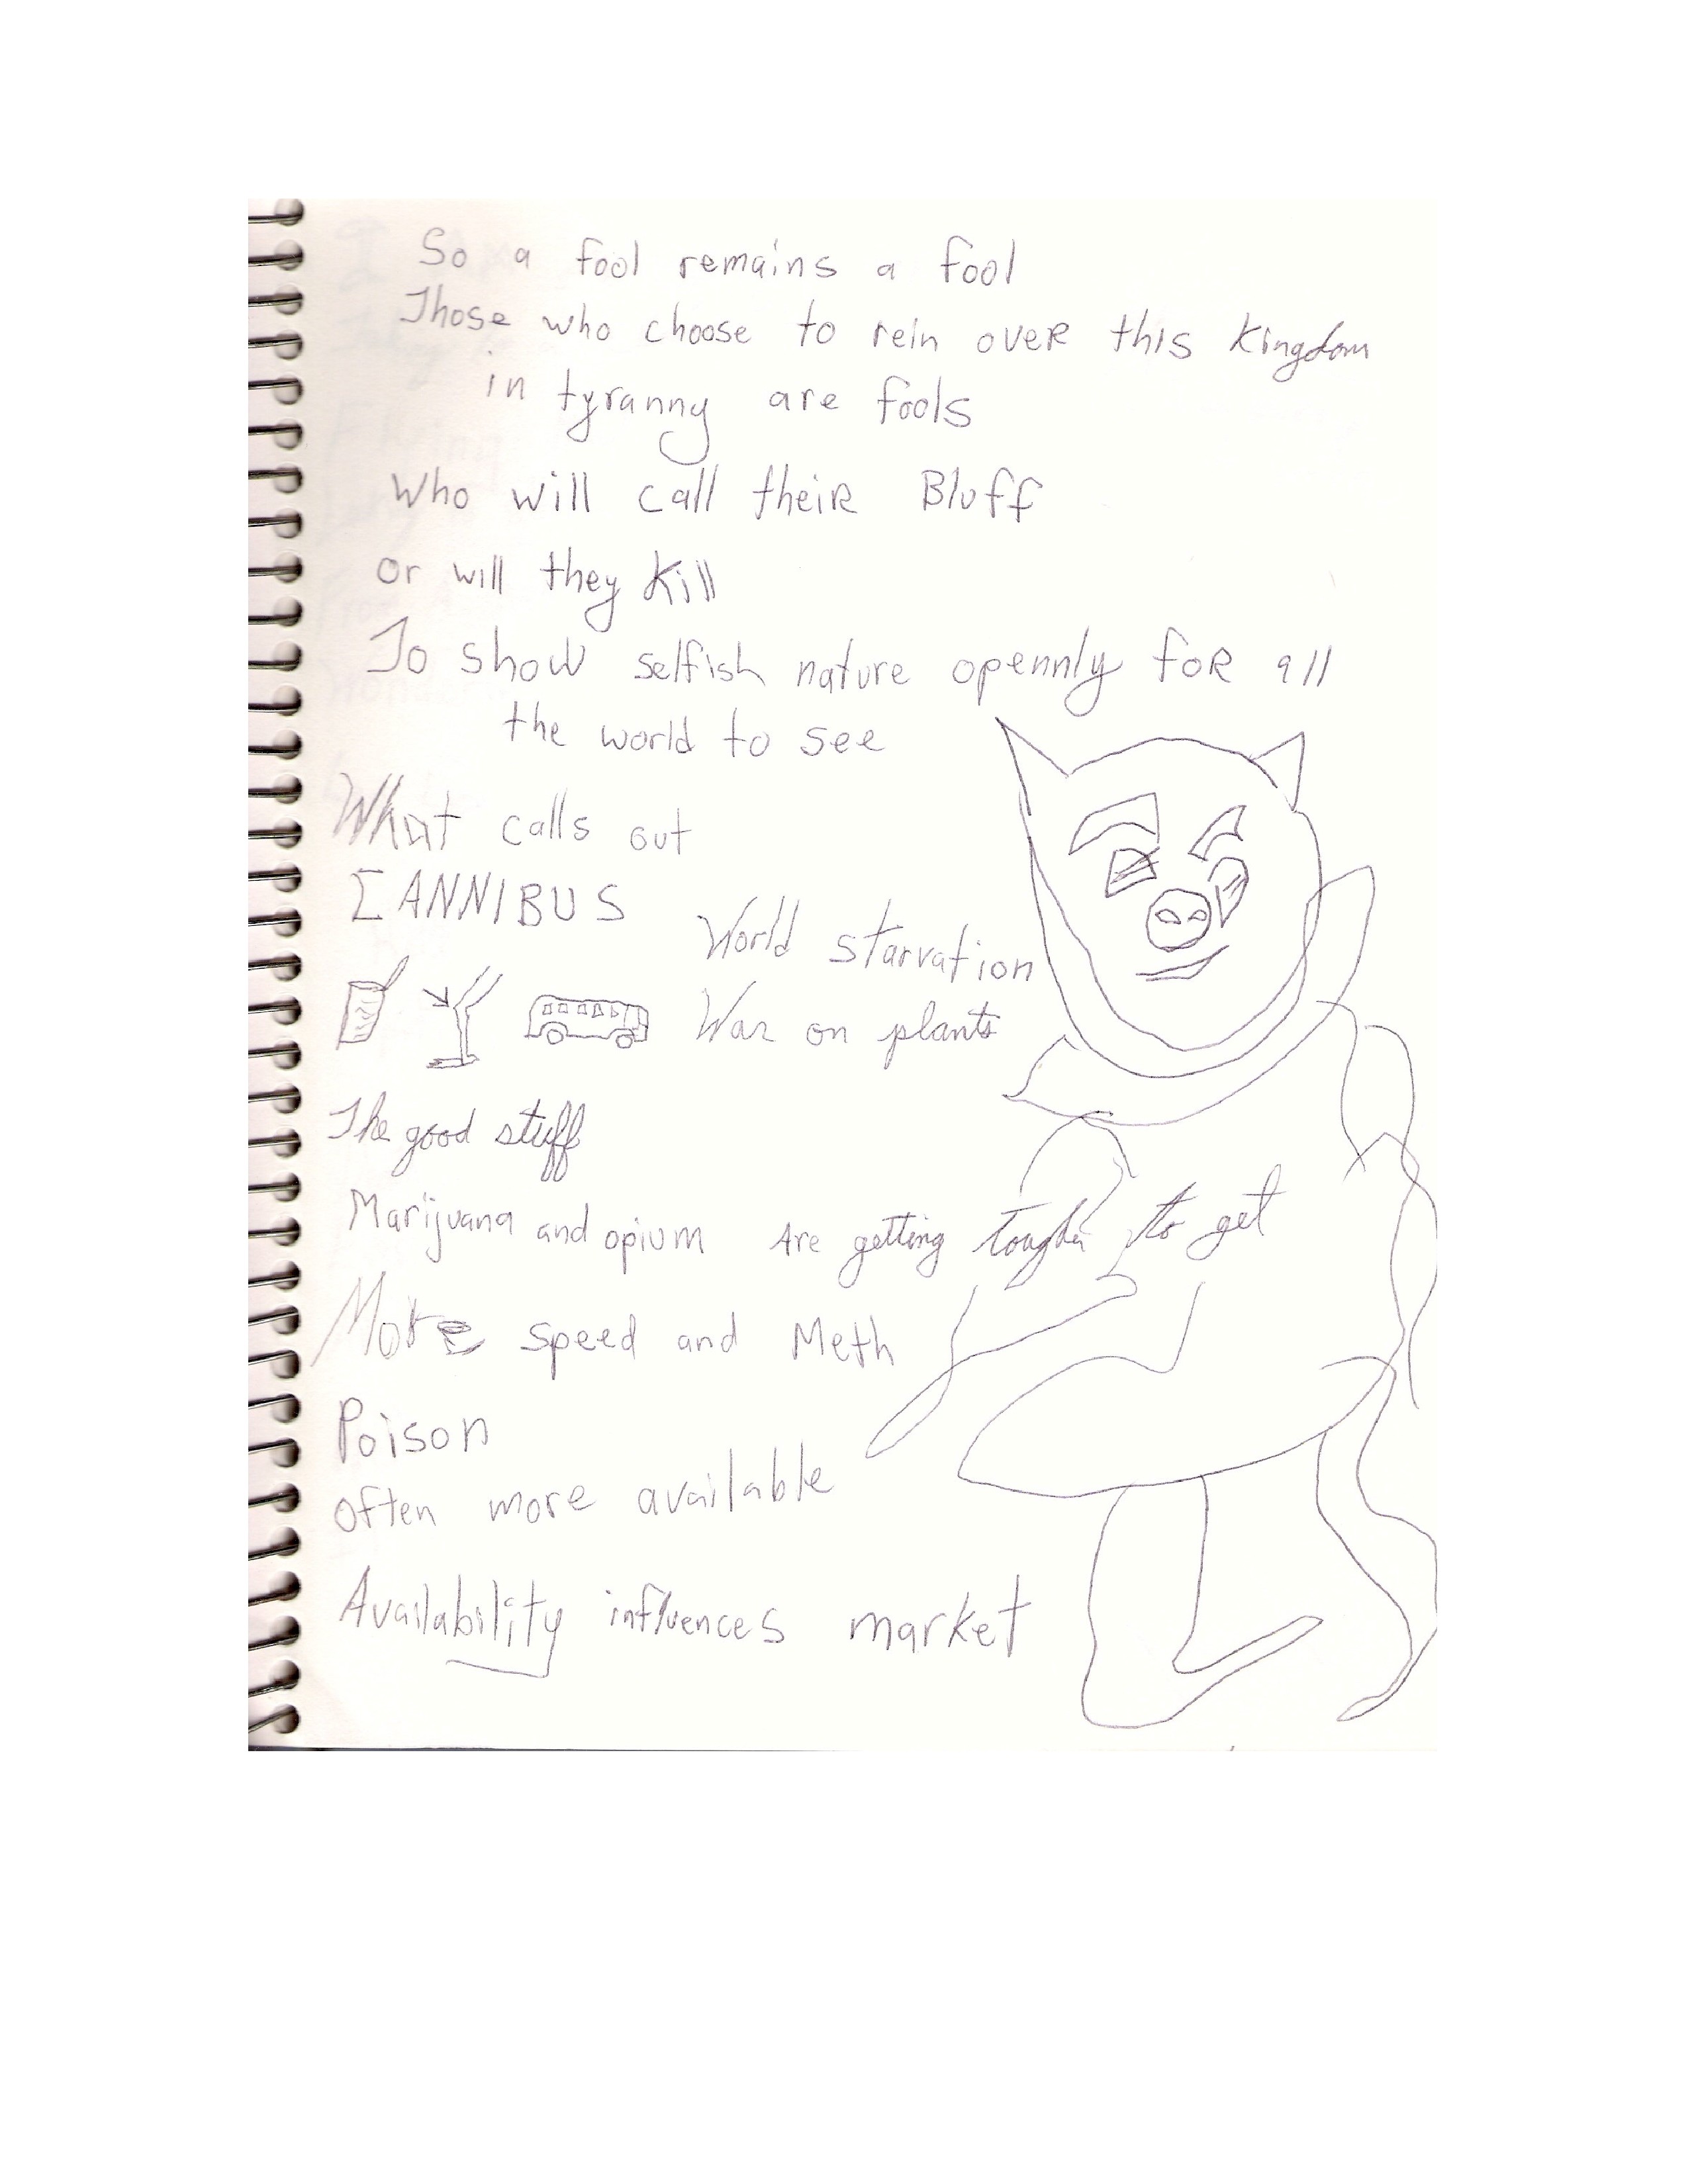 So a fool remains a fool
Those who choose to rein over this Kingdom
in tyranny are fools
Who will call their Bluff
or will they Kill
To show selfish nature opennly for all
the world to see
What calls out
CANNIBUS
World starvation
War on plants
The good stuff
Marijuana and opium Are getting tougher to get
More Speed and Meth
Poison
often more available
Availability influences market